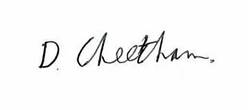 D. Cheetham.